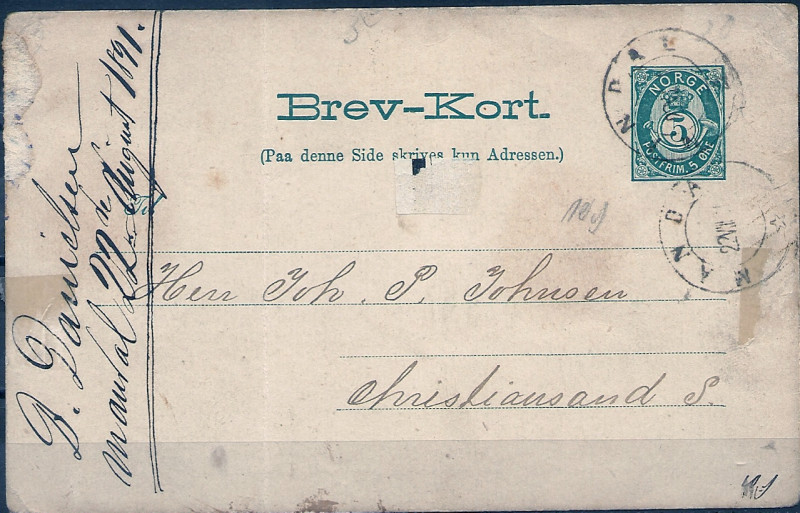 Brev-Kort.
(Paa denne Side skrives kun Adressen.)
NORGE
5
POSTFRIM. 5 ØRE
MANDAL
MANDAL
22 VIII
Til
Herr Joh. P. Johnsen
Christiansand S.
D. Danielsen
Mandal 22de August 1891.